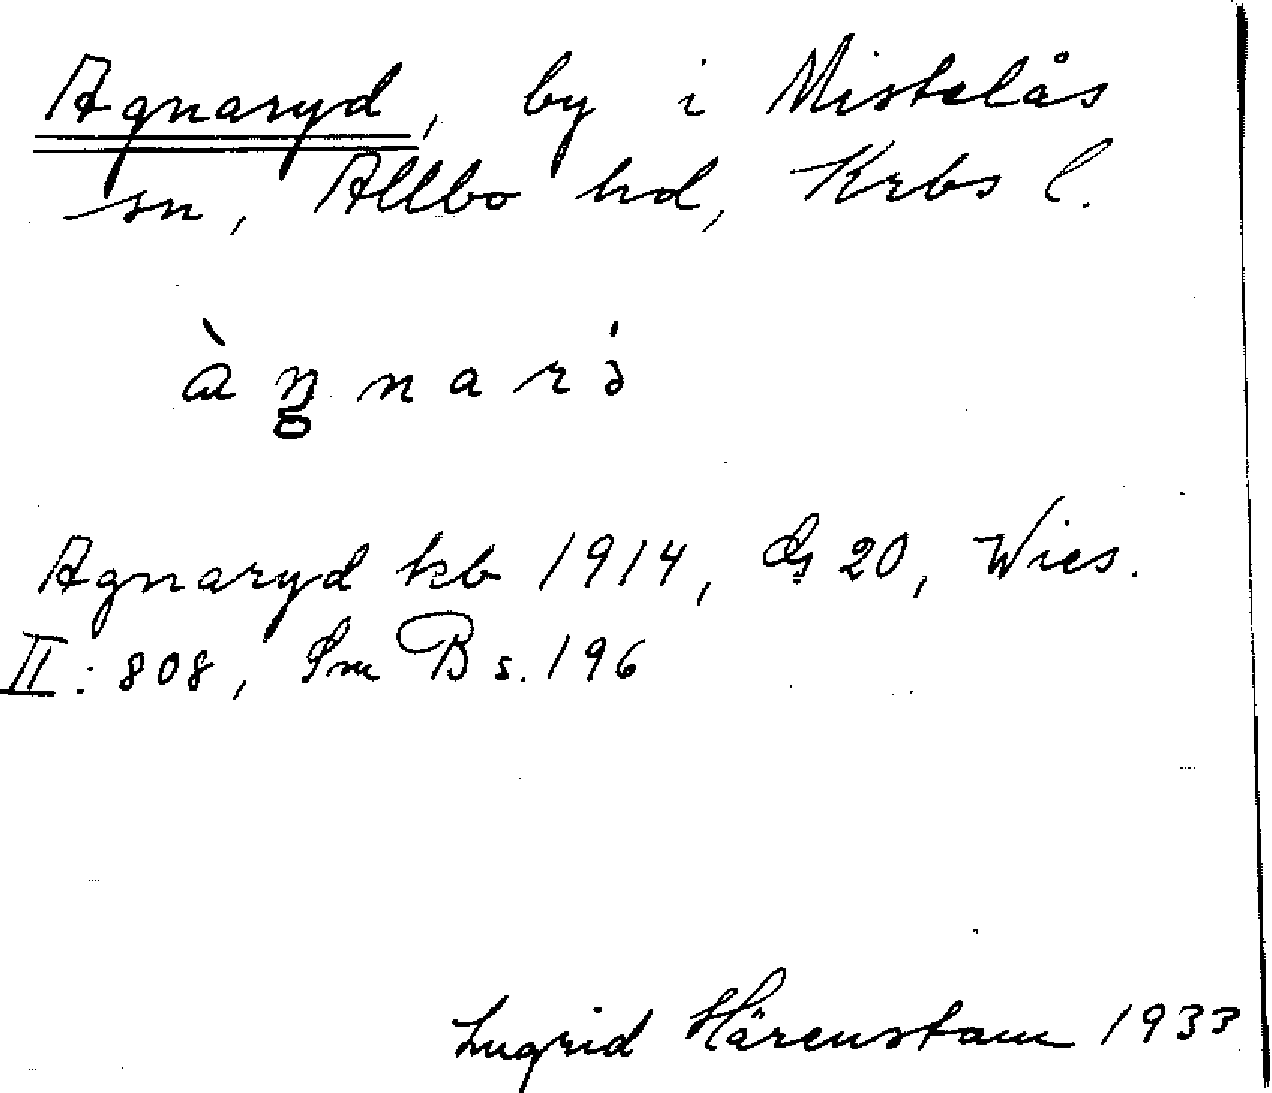 Agnaryd, by i Mistelås
sn, Allbo hd, Krbs l.
àŋnarə́
Agnaryd kb 1914, Gs 20, Wies.
II: 808, Sm B s. 196
Ingrid Härenstam 1933